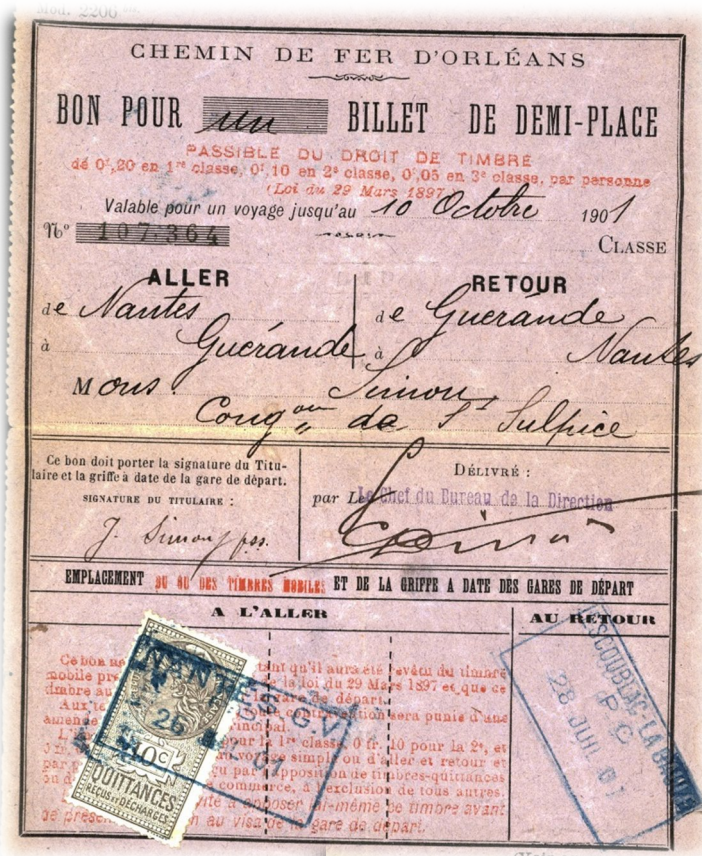 Mod. 2206
CHEMIN DE FER D'ORLÉANS
BON POUR un BILLET DE DEMI-PLACE
PASSIBLE DU DROIT DE TIMBRE
de 0f,20 en 1re classe, 0f,10 en 2e classe, 0f,05 en 3e classe, par personne
(Loi du 29 Mars 1897
Valable pour un voyage jusqu'au 10 Octobre 1901
No 107.364
CLASSE
ALLER
RETOUR
de Nantes
de Guérande
à Guérande
à Nantes
Mons. Simon,
Congon de St Sulpice
Ce bon doit porter la signature du Titu-
laire et la griffe à date de la gare de départ.
SIGNATURE DU TITULAIRE :
J. Simon pss.
DÉLIVRÉ :
par Le Chef du Bureau de la Direction
EMPLACEMENT DU OU DES TIMBRES MOBILES ET DE LA GRIFFE A DATE DES GARES DE DÉPART
A L'ALLER
AU RETOUR
Ce bon
tant qu'il aura été revêtu du timbre
mobile
de la loi du 29 Mars 1897 et que ce
timbre au
gare de départ.
Aux
contravention sera punie d'une
amende
principal.
pour la 1re classe, 0 fr. 10 pour la 2e, et
voyage simple ou d'aller et retour et
par
par l'apposition de timbres-quittances
commerce, à l'exclusion de tous autres.
apposer lui-même ce timbre avant
de
au visa de la gare de départ.
NANTES
G.V.
26
01
10c
QUITTANCES
REÇUS ET DÉCHARGES
ESCOUBLAC-LA BAULE
P.C
28 JUIL 01